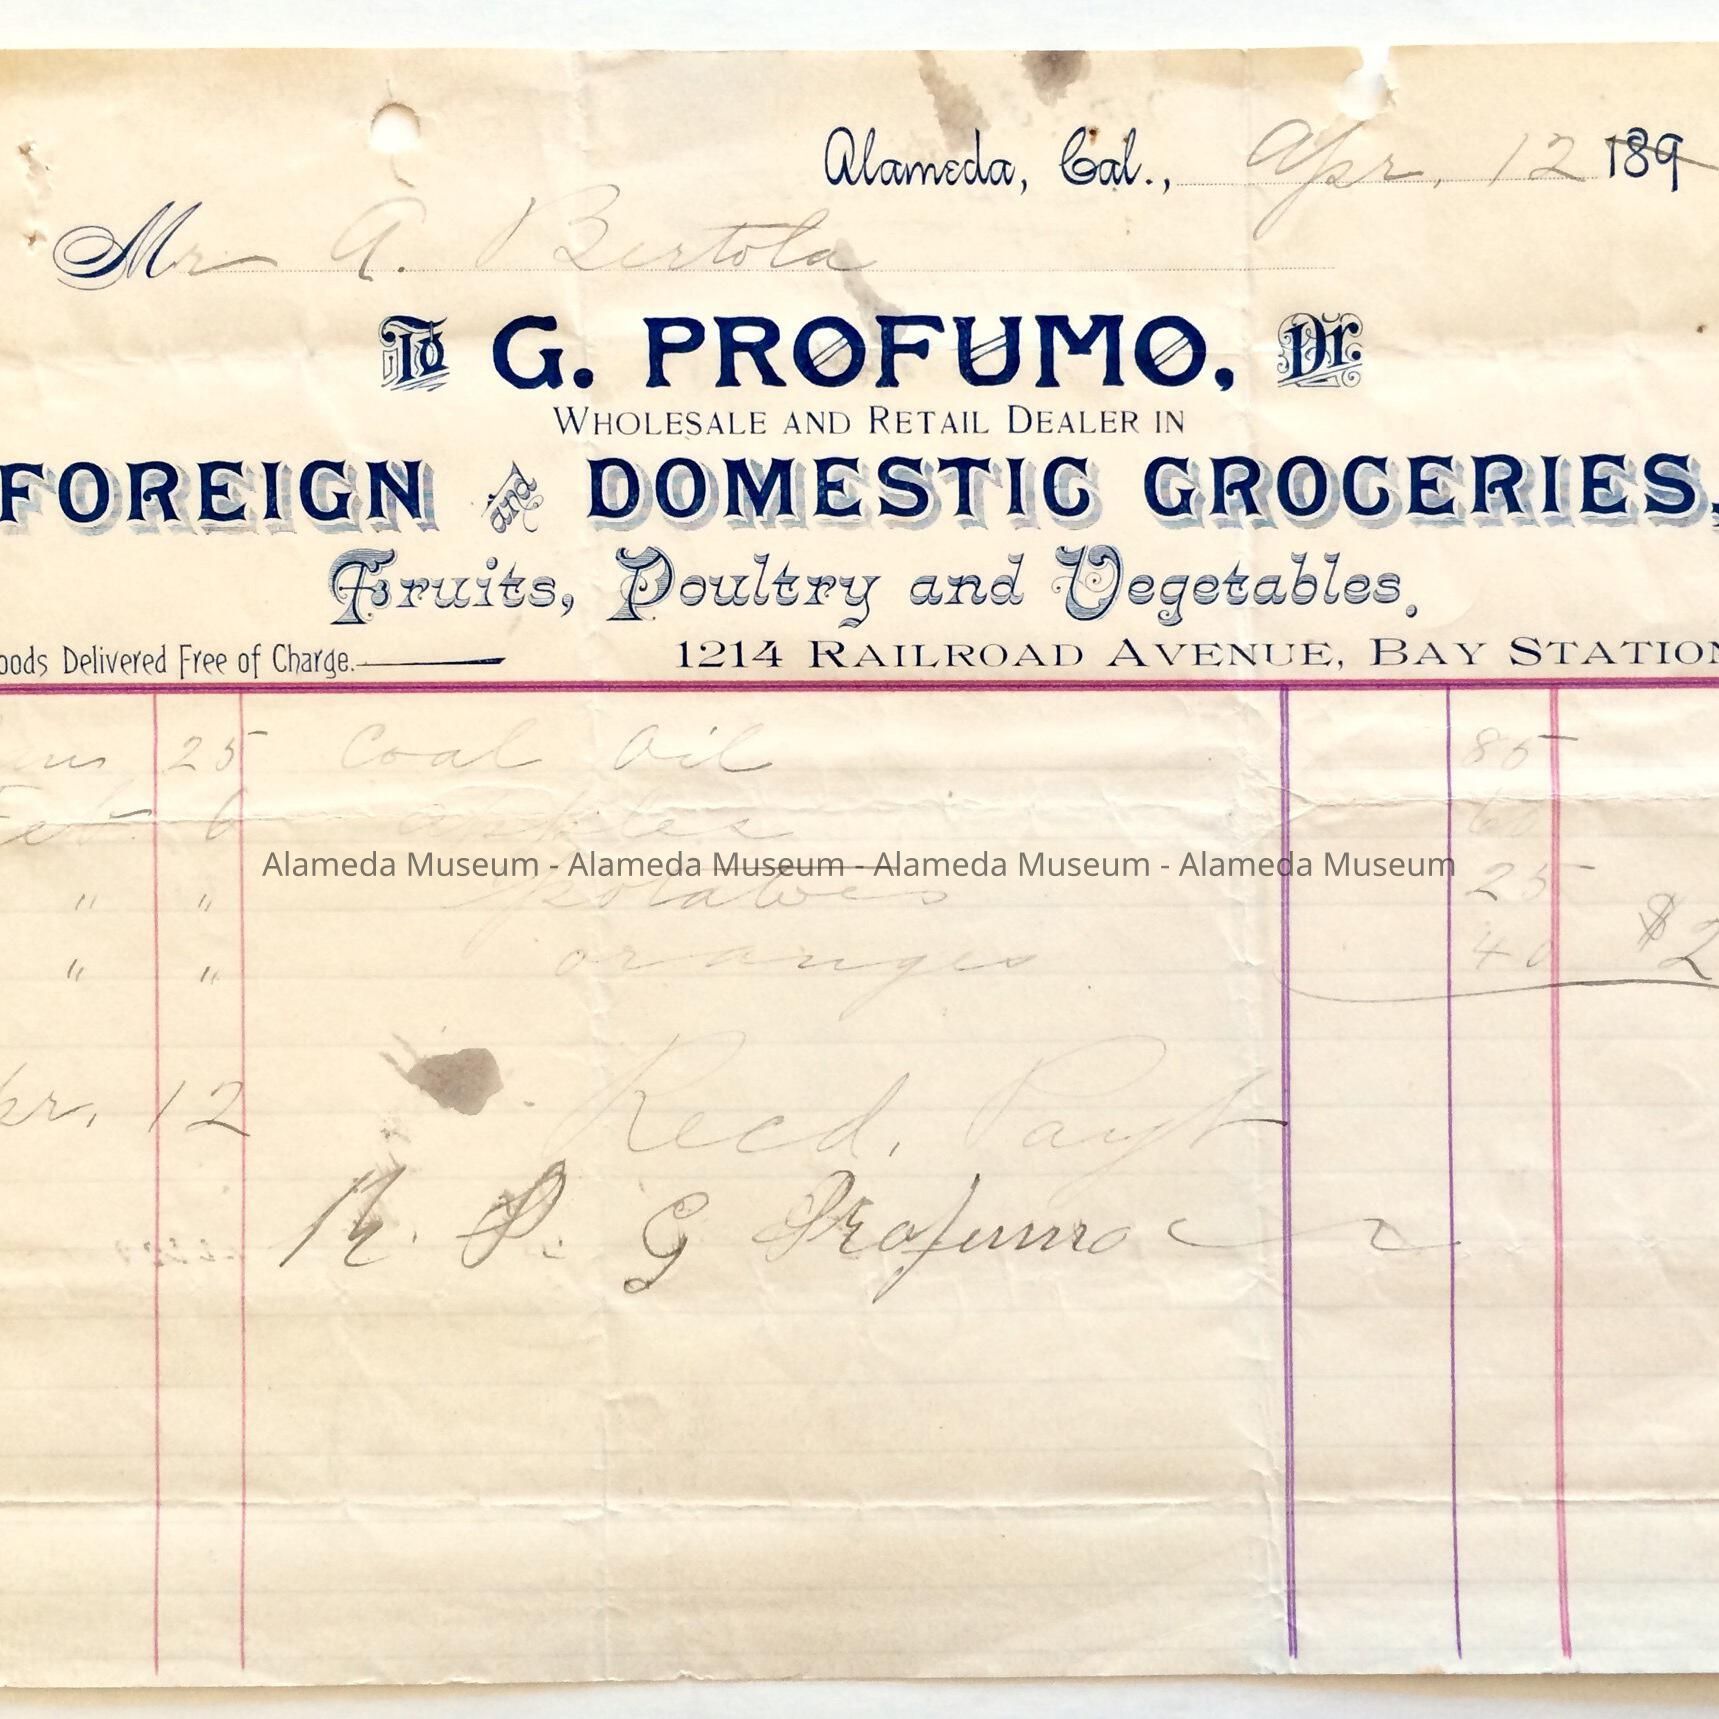 Alameda, Cal., Apr. 12 189
Mr A. Bertola
To G. PROFUMO, Dr.
WHOLESALE AND RETAIL DEALER IN
FOREIGN and DOMESTIC GROCERIES,
Fruits, Poultry and Vegetables.
oods Delivered Free of Charge. 1214 RAILROAD AVENUE, BAY STATION
25 Coal Oil 85
6 apples 60
Alameda Museum - Alameda Museum - Alameda Museum - Alameda Museum
" " potatoes 25
" " oranges 40 $2
pr. 12 Recd. Payt
G Profumo